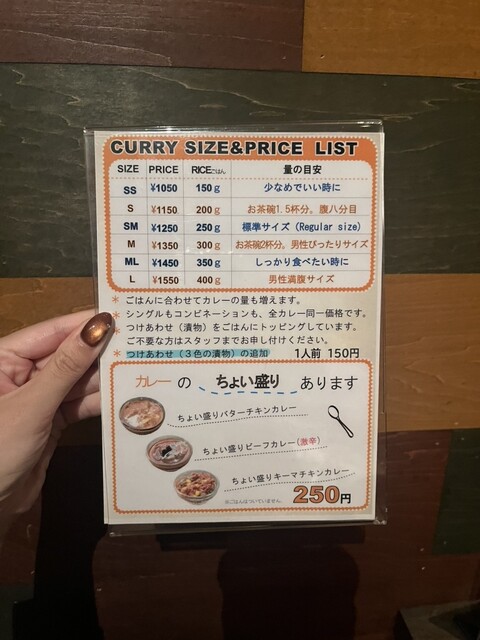 CURRY SIZE&PRICE LIST
SIZE PRICE RICEごはん 量の目安
SS ¥1050 150g 少なめでいい時に
S ¥1150 200g お茶碗1.5杯分。腹八分目
SM ¥1250 250g 標準サイズ (Regular size)
M ¥1350 300g お茶碗2杯分。男性ぴったりサイズ
ML ¥1450 350g しっかり食べたい時に
L ¥1550 400g 男性満腹サイズ
* ごはんに合わせてカレーの量も増えます。
* シングルもコンビネーションも、全カレー同一価格です。
* つけあわせ（漬物）をごはんにトッピングしています。
ご不要な方はスタッフまでお申し付けください。
* つけあわせ（３色の漬物）の追加 1人前 150円
カレーの ちょい盛り あります
ちょい盛りバターチキンカレー
ちょい盛りビーフカレー(激辛)
ちょい盛りキーマチキンカレー
※ごはんはついていません。 250円